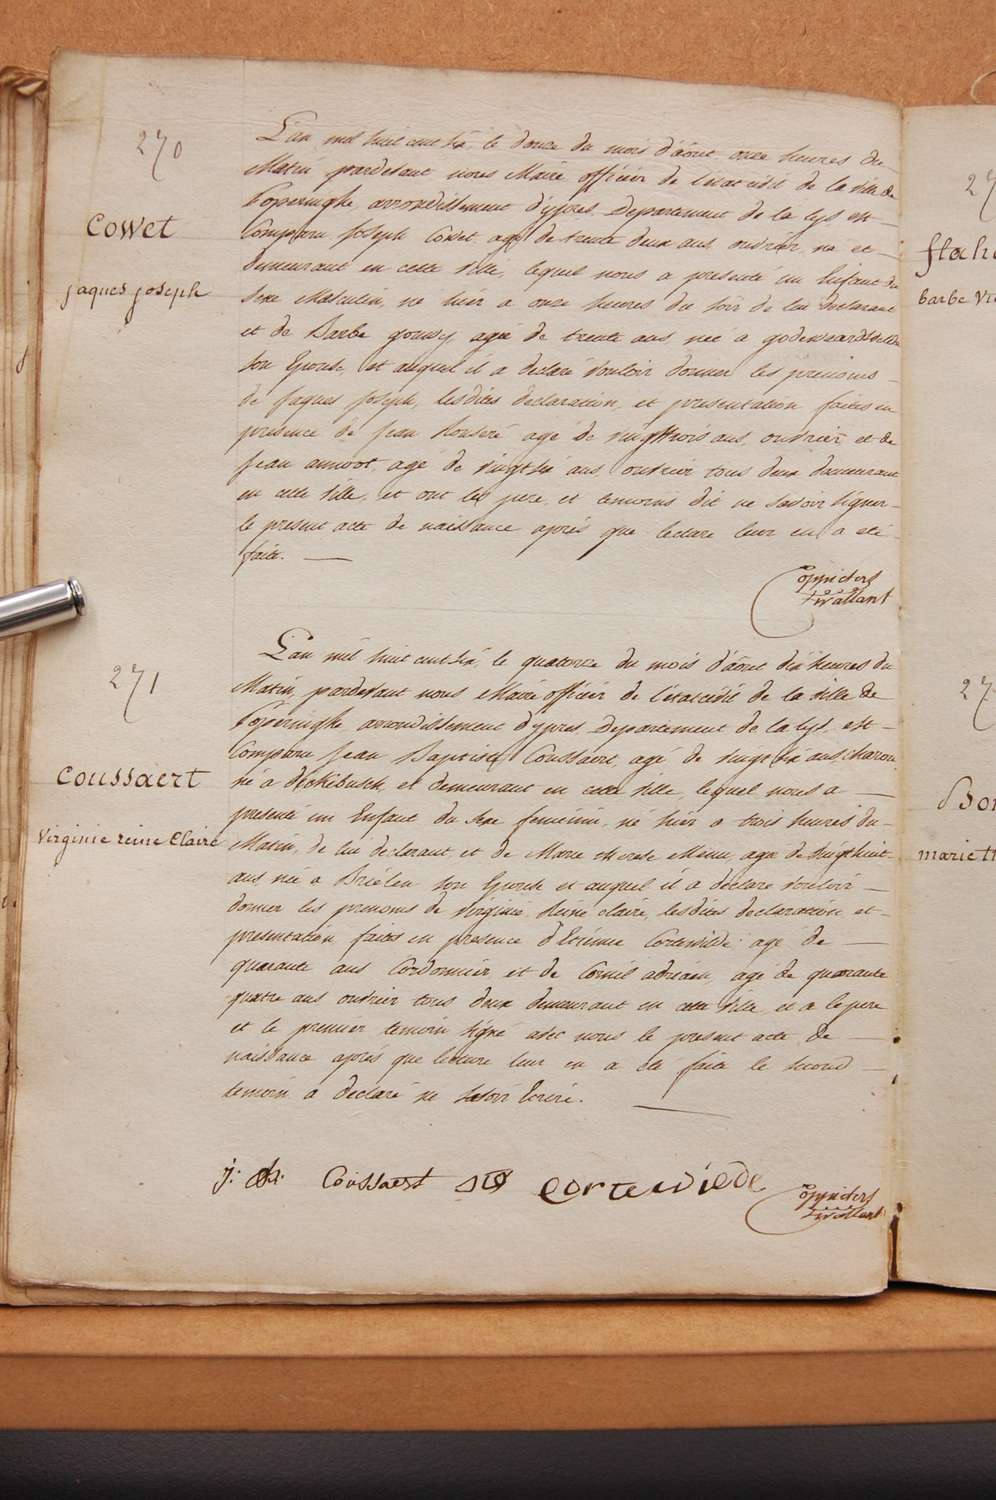 270
Cowet
jaques joseph
L'an mil huit cent six, le douze du mois d'aôut onze heures du
Matin pardevant nous Maire officier de l'état civil de la ville de
Poperinghe arrondissement d'ypres, Departement de la lys est
Comparu joseph Cowet, agé de trente deux ans, ouvrier, né et
demeurant en cette ville, lequel nous a presenté un Enfant du
sexe Masculin, né hier a onze heures du soir de lui declarant
et de Barbe gouwy agée de trente ans née a godewaersvelde
son Epouse, et auquel il a declaré vouloir donner les prénoms
de jaques joseph, lesdites declaration, et presentation faites en
presence de jean agé de vingttrois ans, ouvrier et de
jean agé de vingt six ans, ouvrier tous deux demeurant
en cette ville, et ont les pere, et temoins dit ne savoir signer
le present acte de naissance après que lecture leur en a eté
faite.
271
Coussaert
Virginie reine Claire
L'an mil huit cent six, le quatorze du mois d'aôut dix heures du
Matin, pardevant nous Maire officier de l'état civil de la ville de
Poperinghe, arrondissement d'ypres, Departement de la lys, est
Comparu jean Baptiste Coussaert, agé de vingt six ans, charon,
né a dickebusch, et demeurant en cette ville, lequel nous a
presenté un Enfant du sexe feminin, né hier a trois heures du
Matin, de lui declarant, et de Marie therese agée de vingthuit
ans, née a Brielen, son Epouse et auquel il a declaré vouloir
donner les prenoms de virginie Reine claire, lesdites declaration, et
presentation faites en presence d'Etienne Cortewilde agé de
quarante ans Cordonnier et de Cornil adriaen, agé de quarante
quatre ans ouvrier tous deux demeurant en cette ville, et a le pere
et le premier temoin signé avec nous le present acte de
naissance après que lecture leur en a eté faite le second
temoin a declaré ne savoir Ecrire.
j: Coussaert
cortewilde
flah
barbe
Bon
marie